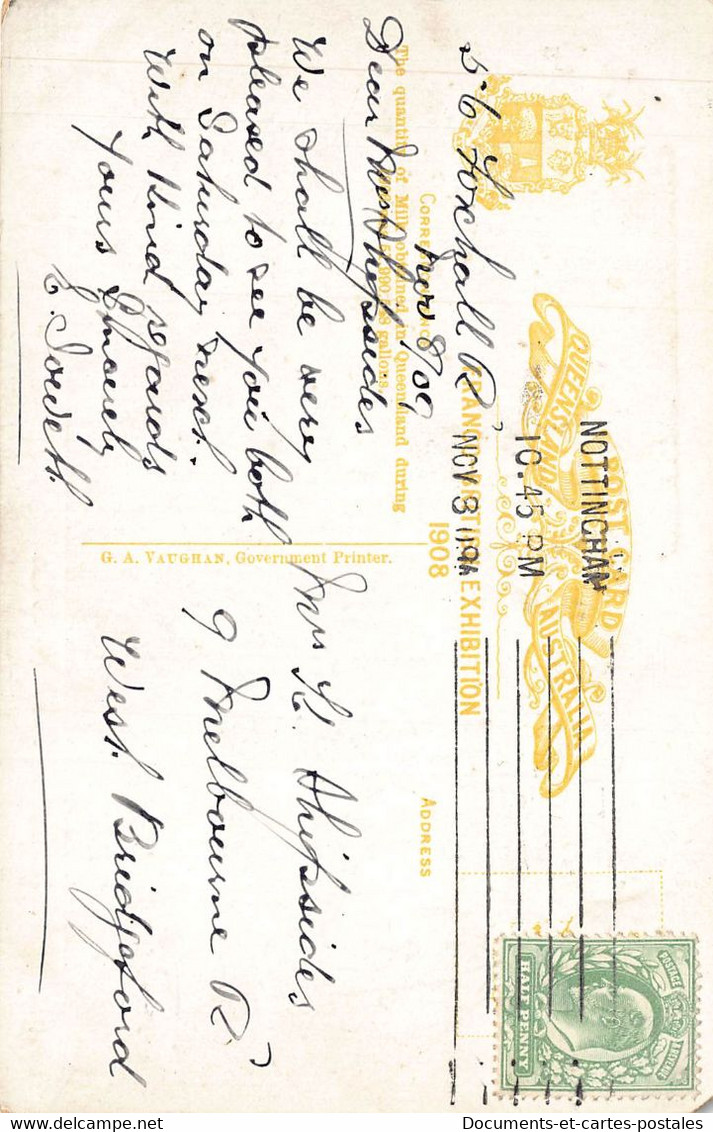 POST CARD
QUEENSLAND AUSTRALIA
FRANCO-BRITISH EXHIBITION
1908
NOTTINGHAM
10.45 PM
NOV 8
HALF PENNY
POSTAGE
CORRESPONDENCE
The quantity of Milk obtained in Queensland during
gallons.
ADDRESS
G. A. VAUGHAN, Government Printer.
56 Foxhall Rd
Nov 8/09
Dear Mrs Shipsides
We shall be very
pleased to see you both
on Saturday next.
With kind regards
Yours Sincerely
Mrs H. Shipsides
9 Melbourne Rd
West Bridgford
Documents-et-cartes-postales